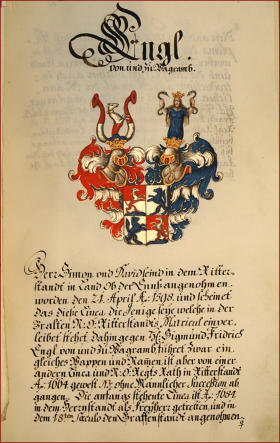 Engl.
von und zu Wagramb.
Herr Simon und Kunds sind in dem Ritter
standt in Land Ob der Ennß angenohmen
worden den 21. April Aº 1598 und scheinet
das diese Linea die jenige seye welche in der
Uralten N: Ö: Ritterstandts Matricul einver
leibet stehet. Dahingegen Hr. Sigmund Fridrich
Engl von und zu Wagramb führet zwar ein
gleiches Wappen und Namen, ist aber von einer
andern Linea und N: Ö: Regts Rath in Ritterstandt
Aº 1604 gewest ohne Mannlicher Succession ab
gangen. Die anfangs stehente Linea ist Aº 1684
in dem Herrnstandt als Freyherr getretten und in
dem 18ten Seculo den Graffenstandt angenohmen.